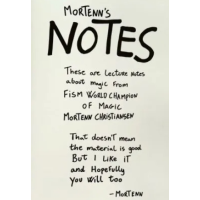 MORTENN'S
NOTES
These are lecture notes
about magic from
FISM WORLD CHAMPION
OF MAGIC
MORTENN CHRISTIANSEN
That doesn't mean
the material is good
But I like it
and Hopefully
you will too
- MORTENN